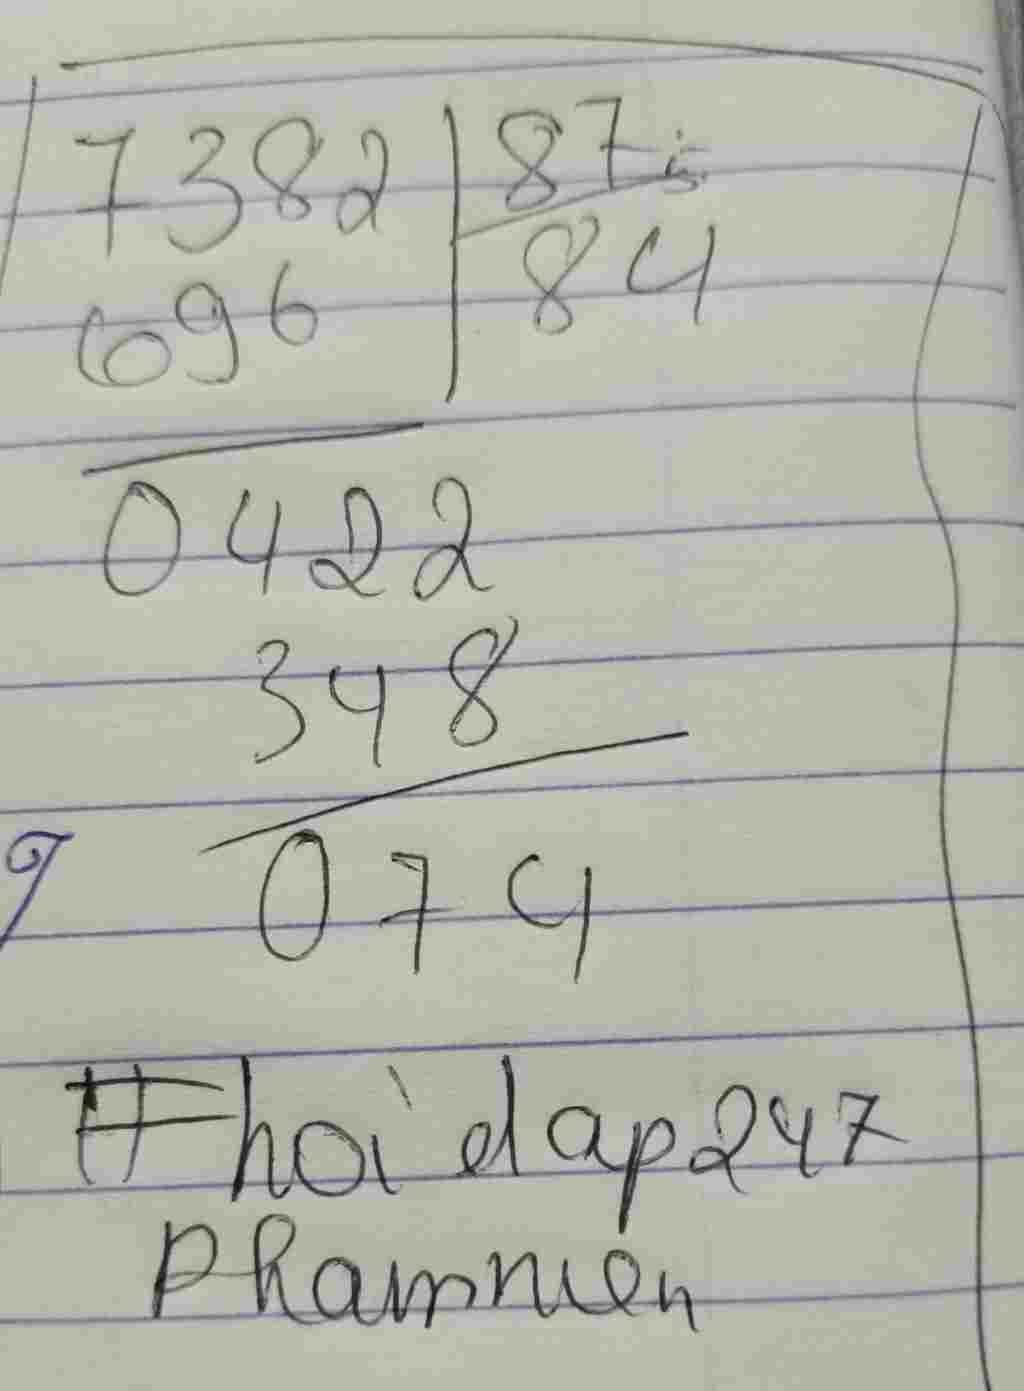 7382 87
696 84
0422
348
074
#hoidap247
Phammien